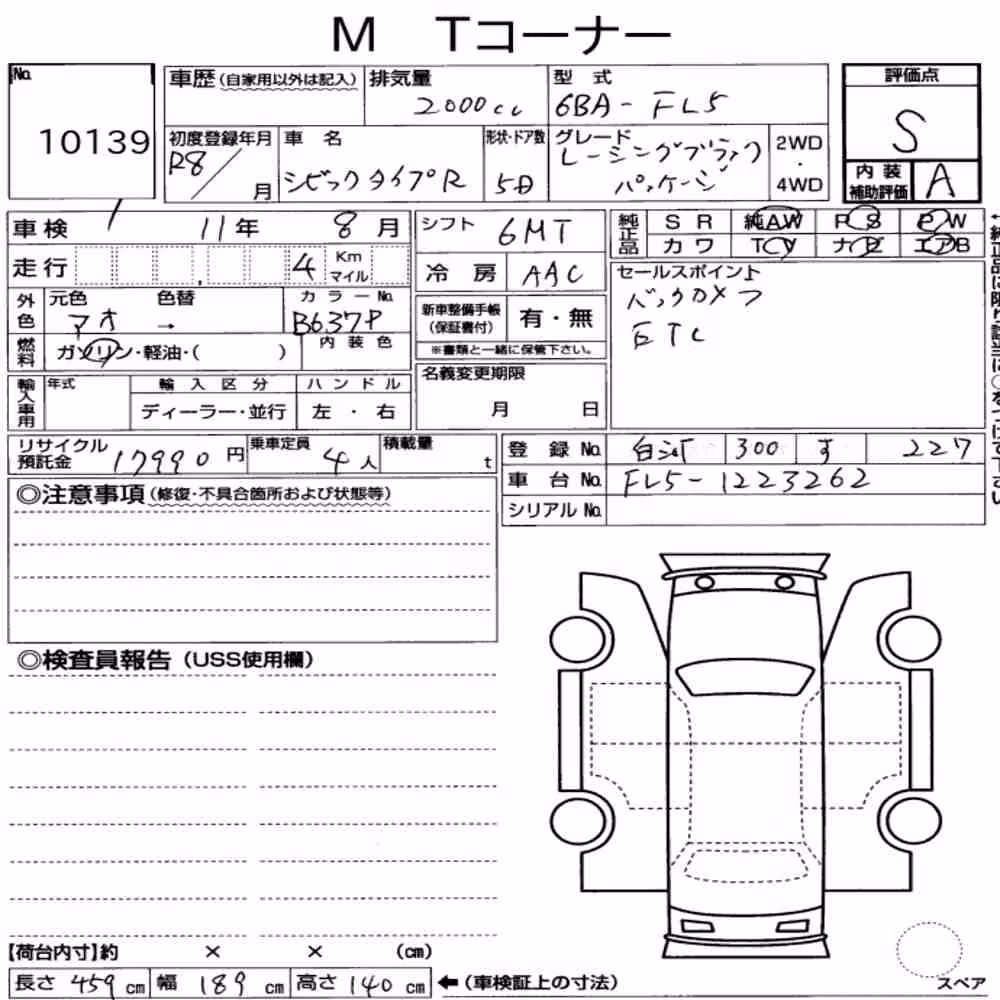 M Tコーナー
No. 10139
車歴 (自家用以外は記入)
排気量 2000cc
型式 6BA-FL5
評価点 S
初度登録年月 R8/ 月
車名 シビックタイプR
形状・ドア数 5D
グレード レーシングブラックパッケージ
2WD・4WD
内装補助評価 A
車検 11年 8月
シフト 6MT
純正品 SR 純AW PS PW
カワ TV ナビ エアB
走行 4 Km マイル
冷房 AAC
セールスポイント
バックカメラ
ETC
外色 元色 アオ 色替 → カラーNo. B637P
新車整備手帳(保証書付) 有・無
※書類と一緒に保管下さい。
燃料 ガソリン・軽油・( ) 内装色
輸入車用 年式 輸入区分 ハンドル
ディーラー・並行 左・右
名義変更期限 月 日
リサイクル預託金 17990円
乗車定員 4人
積載量 t
登録No. 300 す 227
車台No. FL5-1223262
シリアルNo.
◎注意事項 (修復・不具合箇所および状態等)
◎検査員報告 (USS使用欄)
【荷台内寸】約 × × (cm)
長さ 459cm 幅 189cm 高さ 140cm ←(車検証上の寸法)
スペア